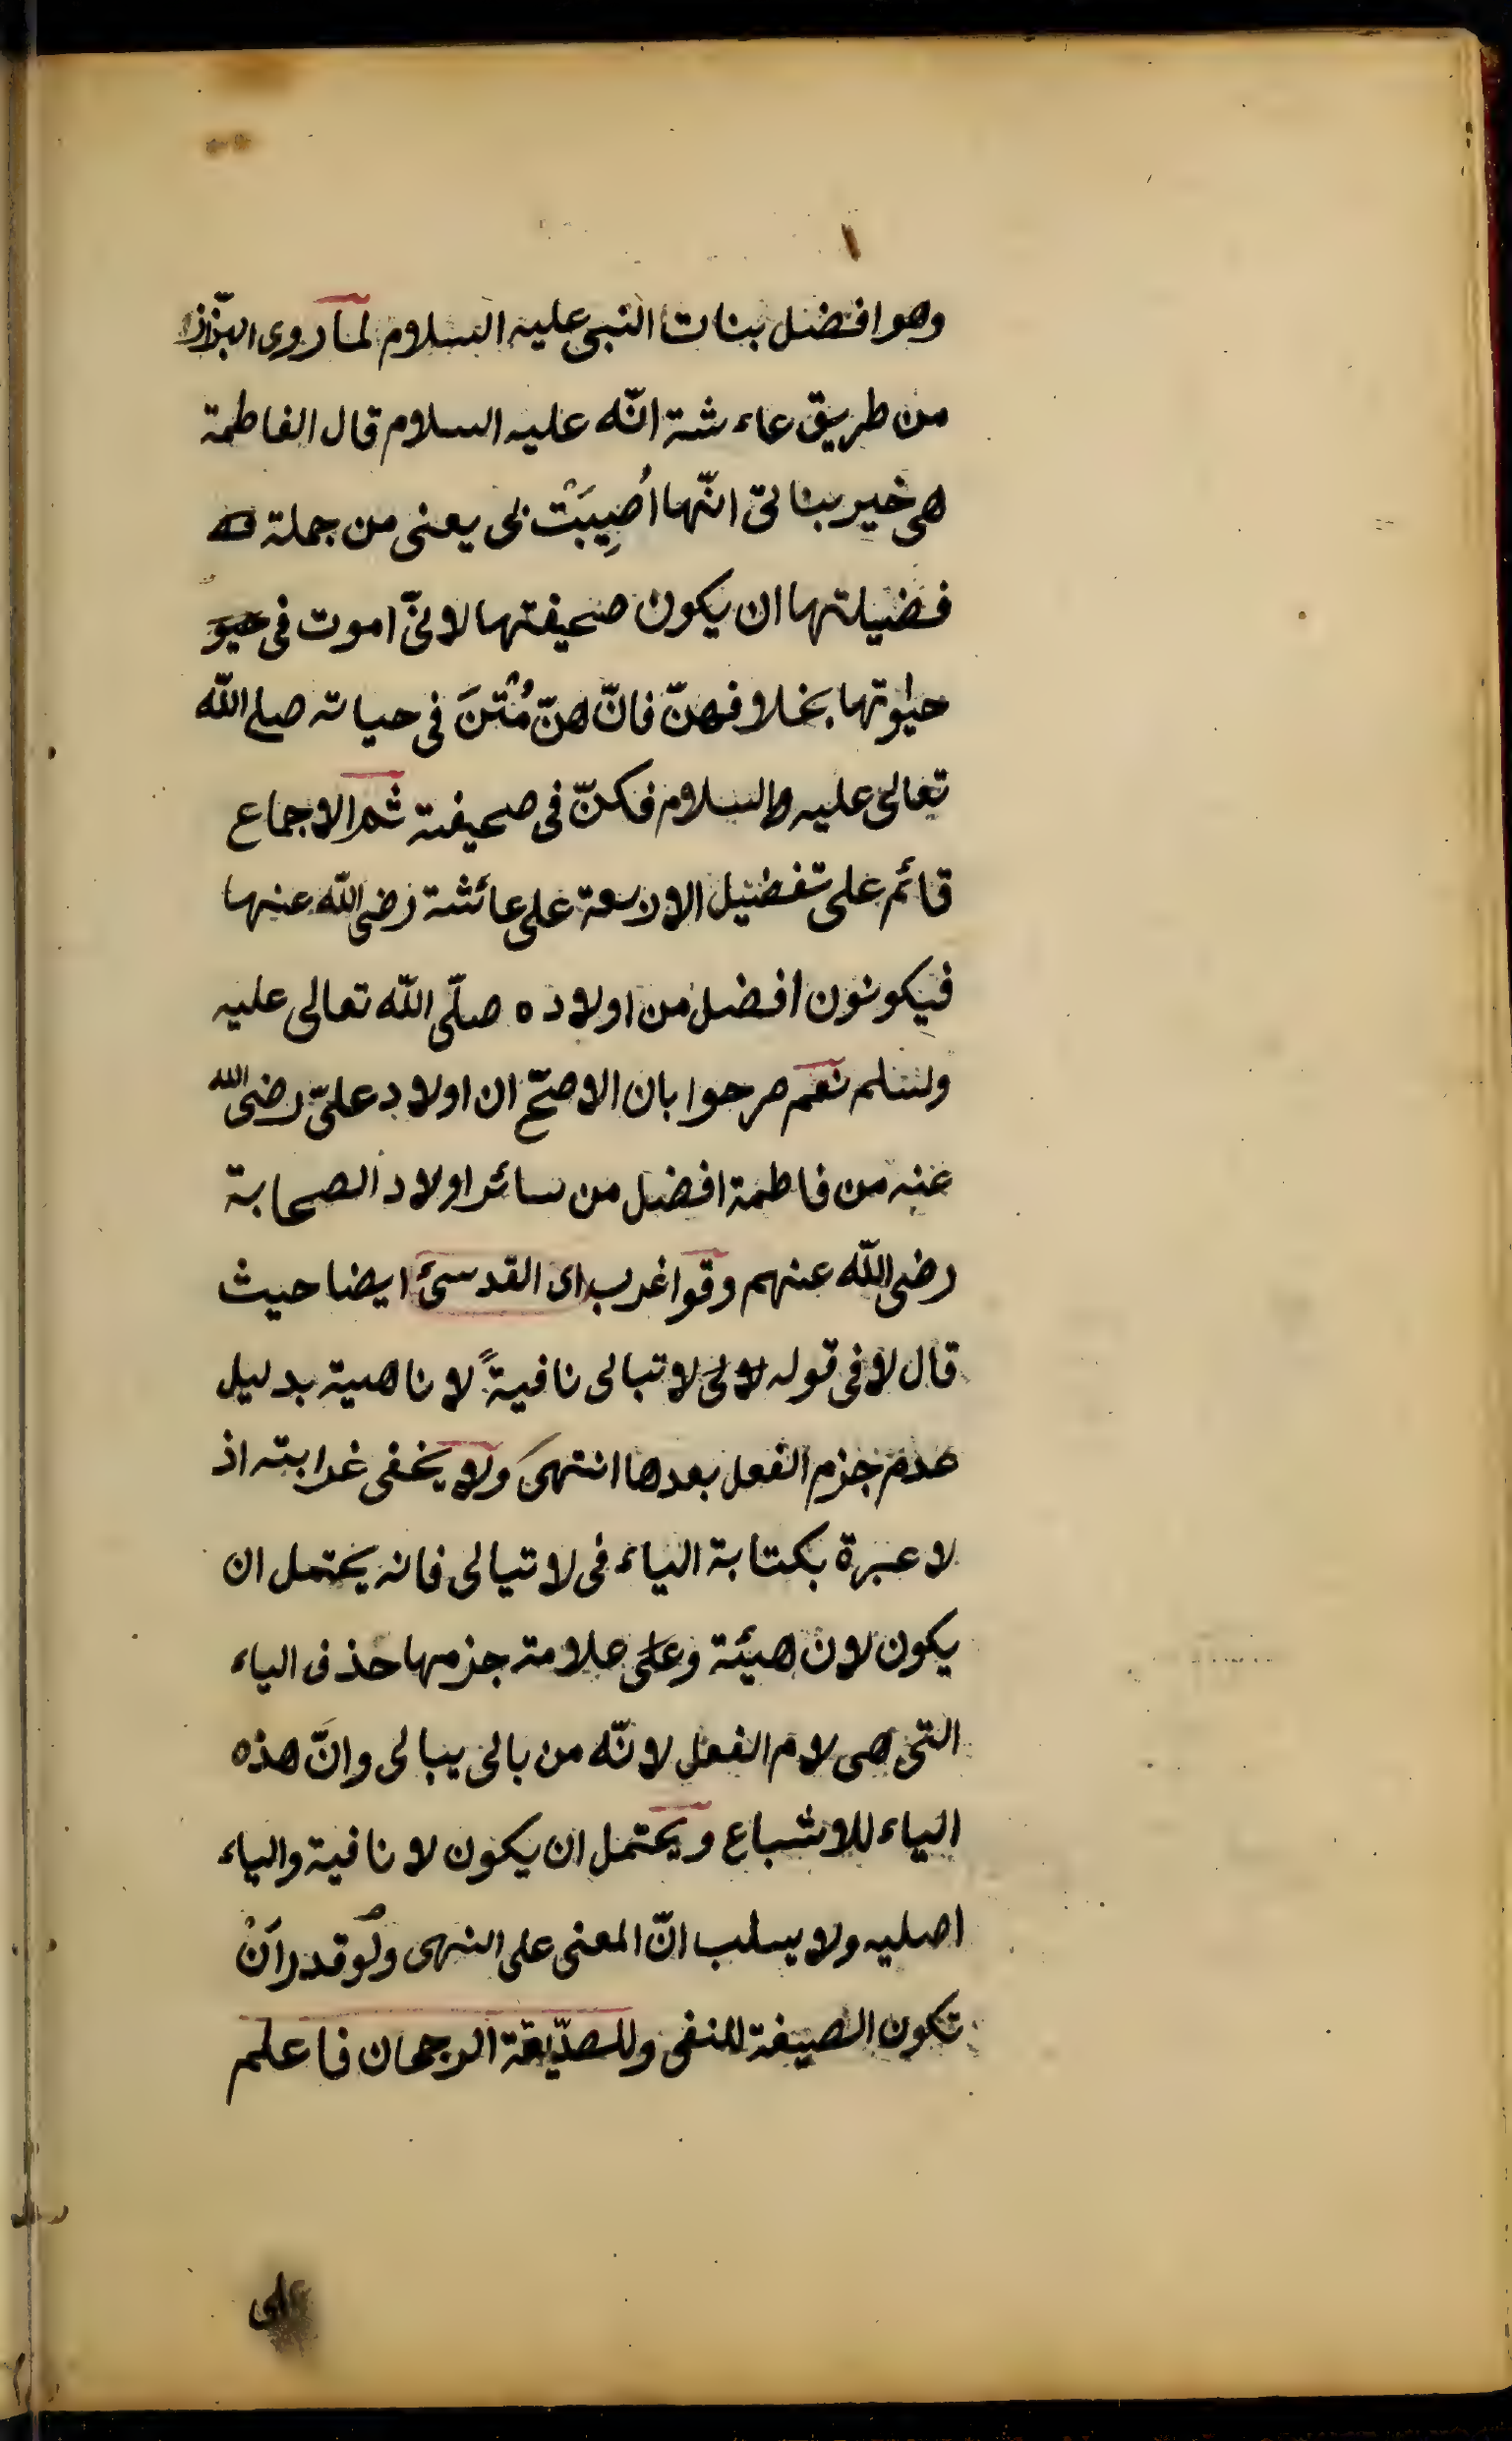 وهو افضل بنات النبى عليه السلام لما روى البزّاز
من طريق عاءشة انّه عليه السلام قال الفاطمة
هى خير بناتى انّها اُصِيبَتْ بى يعنى من جملة
فضيلتها ان يكون صحيفتها لانّى اموت فى حيو
حيٰوتها بخلافهنّ فانّ هنّ مُتْنَ فى حياته صلى الله
تعالى عليه والسلام فكنّ فى صحيفته ثم الاجماع
قائم على تفضيل الاربعة على عائشة رضى الله عنها
فيكونون افضل من اولاده صلّى الله تعالى عليه
وسلم نعم صرحوا بان الاصحّ ان اولاد علىّ رضى الله
عنه من فاطمة افضل من سائر اولاد الصحابة
رضى الله عنهم وقو اغرب اى القدسىّ ايضا حيث
قال لا فى قوله لا تبالى نافيةً لا ناهية بدليل
عدم جزم الفعل بعدها انتهىَ ولا يخفى غرابته اذ
لا عبرة بكتابة الياء فى لا تيالى فانه يحتمل ان
يكون لان هيئة وعلى علامة جزمها حذف الياء
التى هى لام الفعل لانّه من بالى يبالى وانّ هذه
الياء للاشباع ويحتمل ان يكون لا نافية والياء
اصليه ولا يسلب انّ المعنى على النهى ولو قدر اَنْ
تكون الصيغة للنفى وللصدّيقة الرجحان فاعلم
على